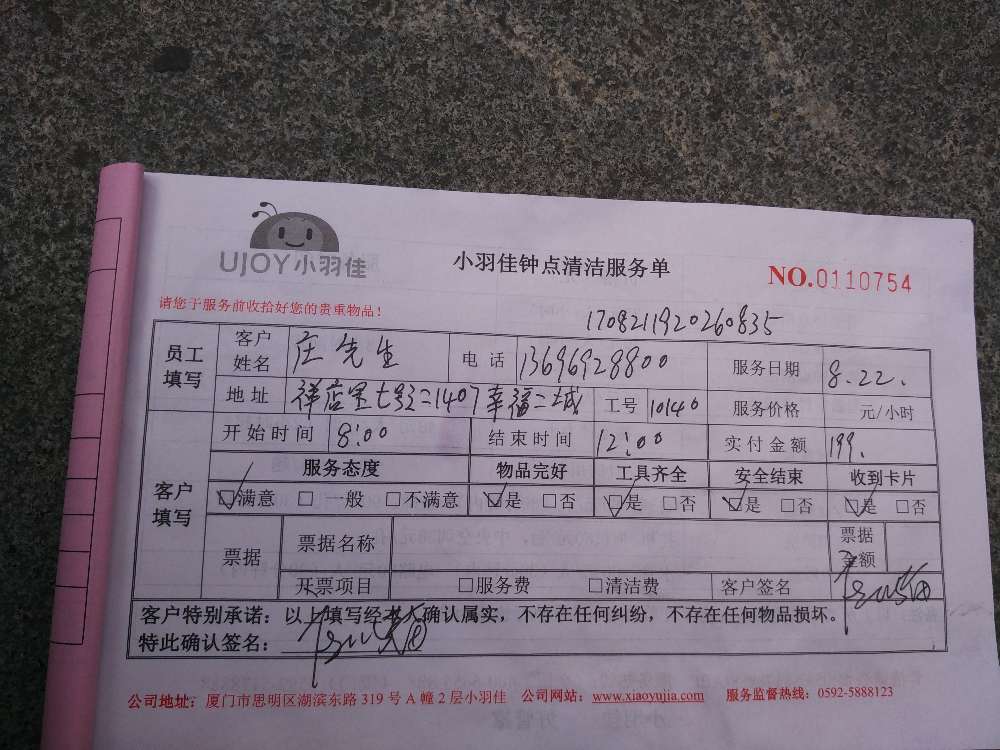 UJOY小羽佳
小羽佳钟点清洁服务单
NO.0110754
请您于服务前收拾好您的贵重物品！
1708211920260835
员工填写 客户姓名 庄先生 电话 13696928800 服务日期 8.22.
地址 祥店里七号之二1407幸福二城 工号 10140 服务价格 元/小时
开始时间 8:00 结束时间 12:00 实付金额 199.
客户填写 服务态度 物品完好 工具齐全 安全结束 收到卡片
☑满意 □一般 □不满意 ☑是 □否 ☑是 □否 ☑是 □否 ☑是 □否
票据 票据名称 票据金额
开票项目 □服务费 □清洁费 客户签名
客户特别承诺：以上填写经本人确认属实，不存在任何纠纷，不存在任何物品损坏。
特此确认签名：
公司地址：厦门市思明区湖滨东路 319 号 A 幢 2 层小羽佳 公司网站：www.xiaoyujia.com 服务监督热线：0592-5888123